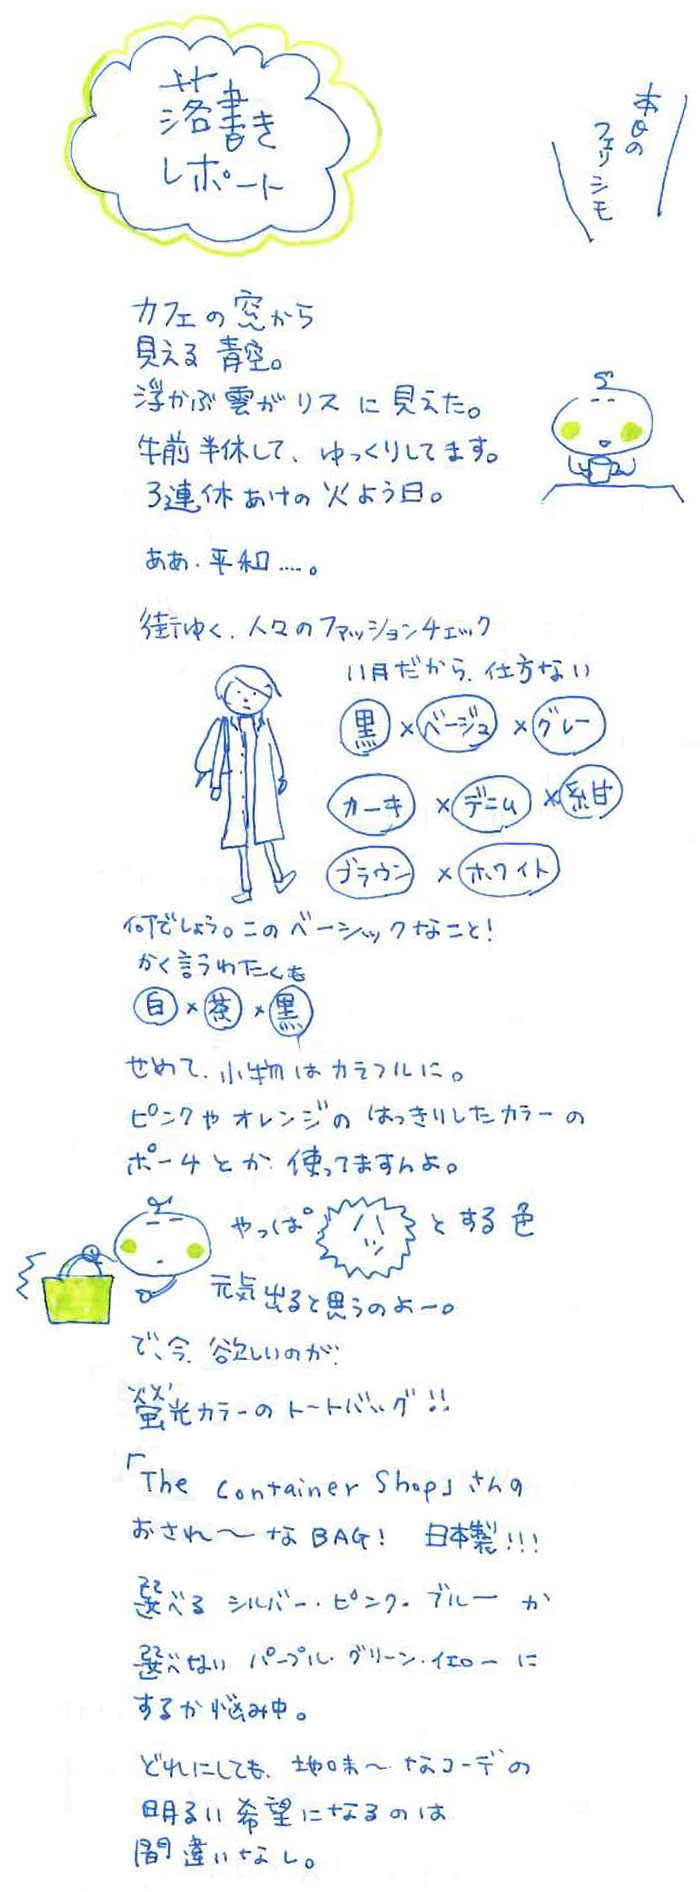 落書き
レポート
本日の
フェリシモ
カフェの窓から
見える青空。
浮かぶ雲がリスに見えた。
午前半休して、ゆっくりしてます。
3連休あけの火よう日。
ああ・平和……。
街ゆく、人々のファッションチェック
11月だから、仕方ない
黒×ベージュ×グレー
カーキ×デニム×紺
ブラウン×ホワイト
何でしょう。このベーシックなこと!
かく言うわたくしも
白×茶×黒
せめて、小物はカラフルに。
ピンクやオレンジのはっきりしたカラーの
ポーチとか使ってますんよ。
やっぱ パッ とする色
元気出ると思うのよー。
で、今、欲しいのが、
蛍光カラーのトートバッグ!!
「The Container Shop」さんの
おされ〜なBAG! 日本製!!!
選べるシルバー・ピンク・ブルーか
選べないパープル・グリーン・イエローに
するか悩み中。
どれにしても、地味〜なコーデの
明るい希望になるのは
間違いなし。